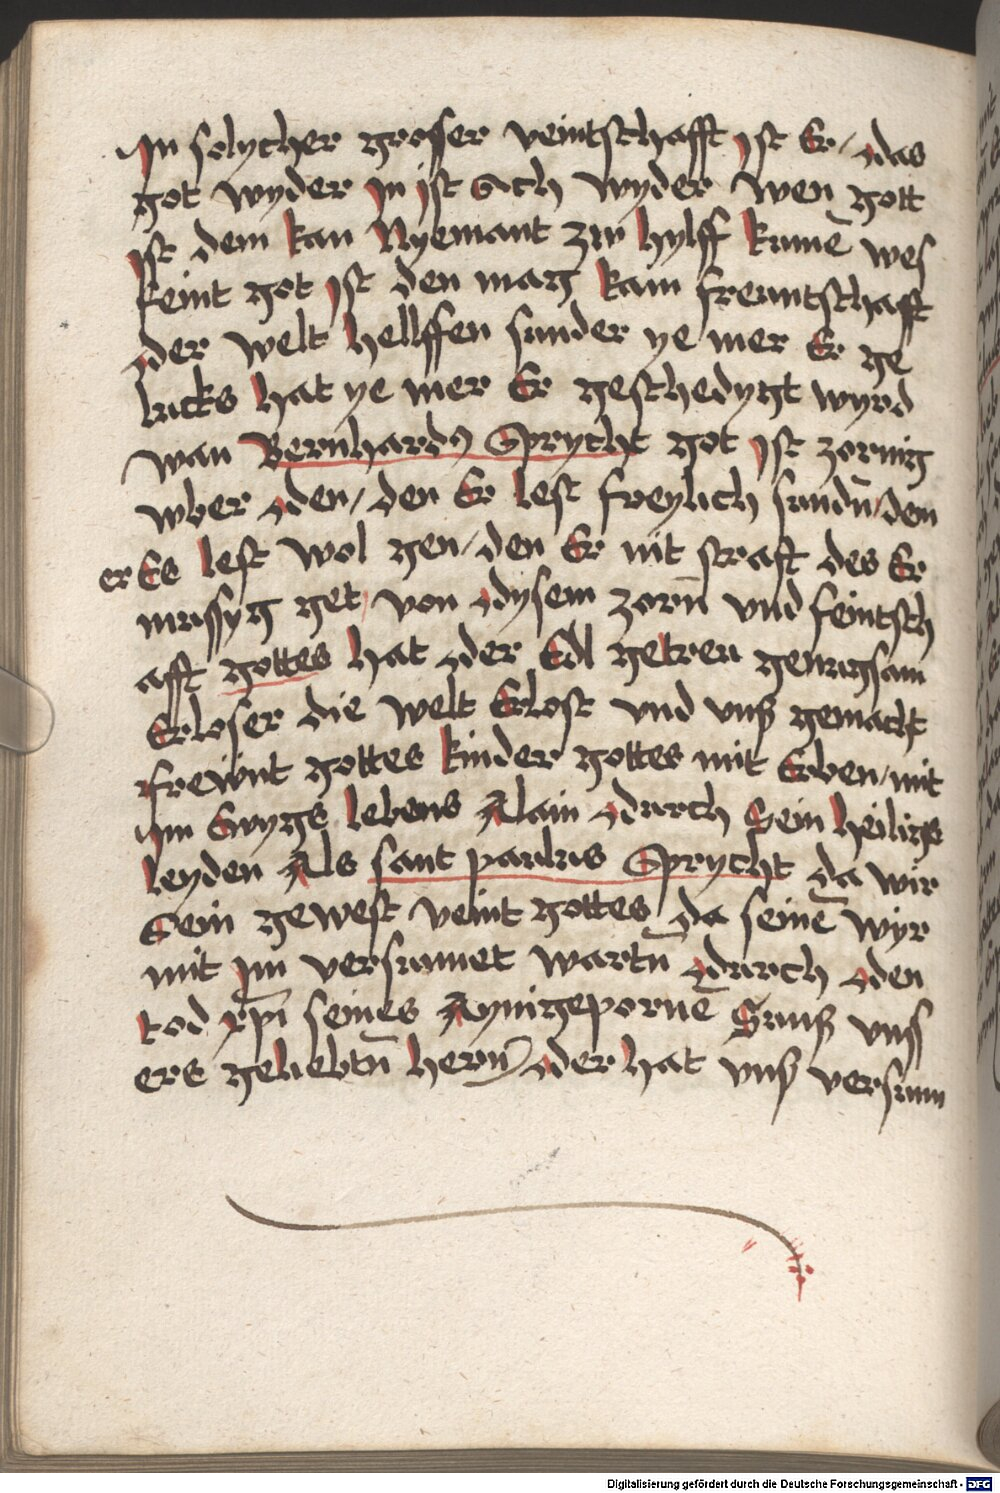 In solycher grosser veintschafft ist Er / das
got wyder in ist Ach wyder wen gott
ist dem kan Nyemant zw hylff kumē wes
feint got ist den mag kain freuntschafft
der welt hellffen sunder ye mer Er ge
lucks hat ye mer Er geschedygt wyrd
wan Bernhardꝯ Sprycht got ist zornig
wber den / den Er lest freylich sundn̄ / dem
er Es lest wol gen / den Er nit straft des Er
mussyg get / von dysem zorn̄ vnd feintsch
afft gottes hat der Edl getreu genugsam
Erloser die welt Erlost vnd vnß gemacht
freünt gottes kinder gottes mit Erben / mit
im Ewygs lebens Alain durch Sein heiligs
leyden Als sant paulus Sprycht da wir
Sein gewest veint gottes da seinē wyr
mit im versunnet wartn̄ durch den
tod xp̄i seines Aynigepornē Sunß vnss
ers geliebtn̄ hern̄ der hat vnß versunn
Digitalisierung gefördert durch die Deutsche Forschungsgemeinschaft - DFG